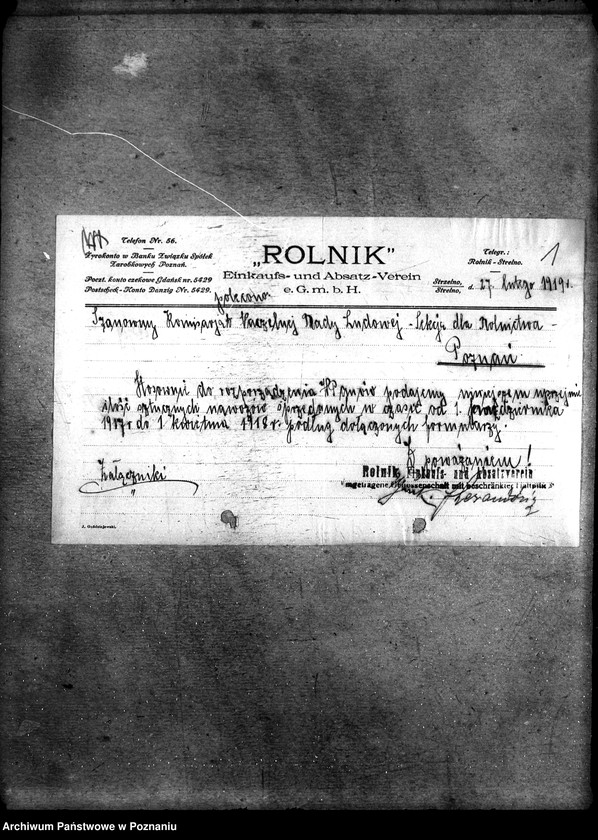 Telefon Nr. 56.
Żyrokonto w Banku Związku Spółek
Zarobkowych Poznań.
Poczt. konto czekowe Gdańsk nr. 5429
Postscheck-Konto Danzig Nr. 5429.
„ROLNIK”
Einkaufs- und Absatz-Verein
e. G. m. b. H.
Telegr.:
Rolnik - Strelno.
1
Strzelno,
Strelno,
d. 27. lutego 1919 r.
polecona
Szanowny Komisarjat Naczelnej Rady Ludowej - Sekcja dla Rolnictwa -
Poznań
Stosownie do rozporządzenia WPanów podajemy niniejszem uprzejmie
ilość sztucznych nawozów sprzedanych w czasie od 1. października
1917 r. do 1 kwietnia 1918 r. podług dołączonych formularzy.
Z poważaniem!
Załączniki
Rolnik Einkaufs- und Absatzverein
eingetragene Genossenschaft mit beschränkter Haftpflicht
J. Gołdziejewski.
Archiwum Państwowe w Poznaniu